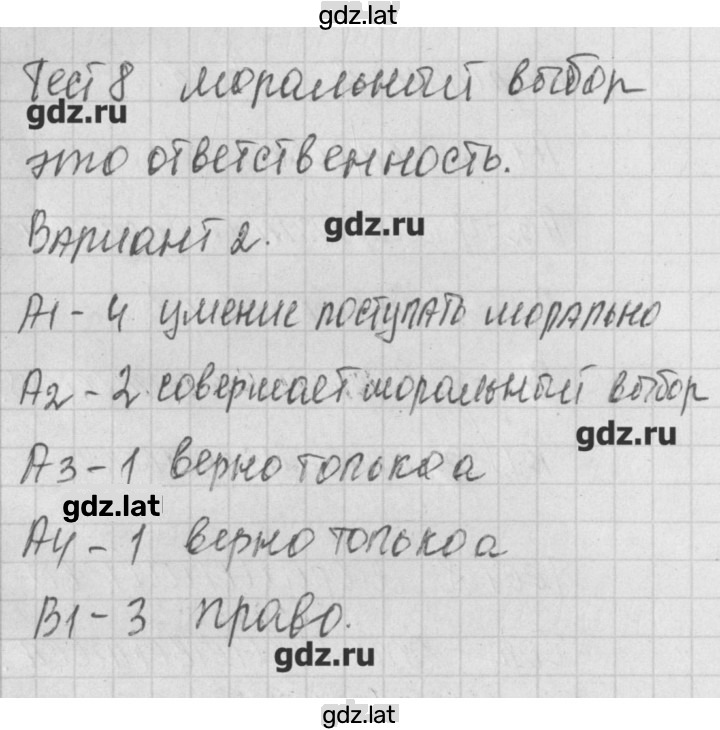 gdz.lat
Тест 8 моральный выбор
gdz.ru
это ответственность.
Вариант 2.
gdz.ru
А1 - 4 умение поступать морально
А2 - 2 совершает моральный выбор
gdz.ru
А3 - 1 верно только а
gdz.lat
А4 - 1 верно только а
В1 - 3 право.
gdz.ru
gdz.lat